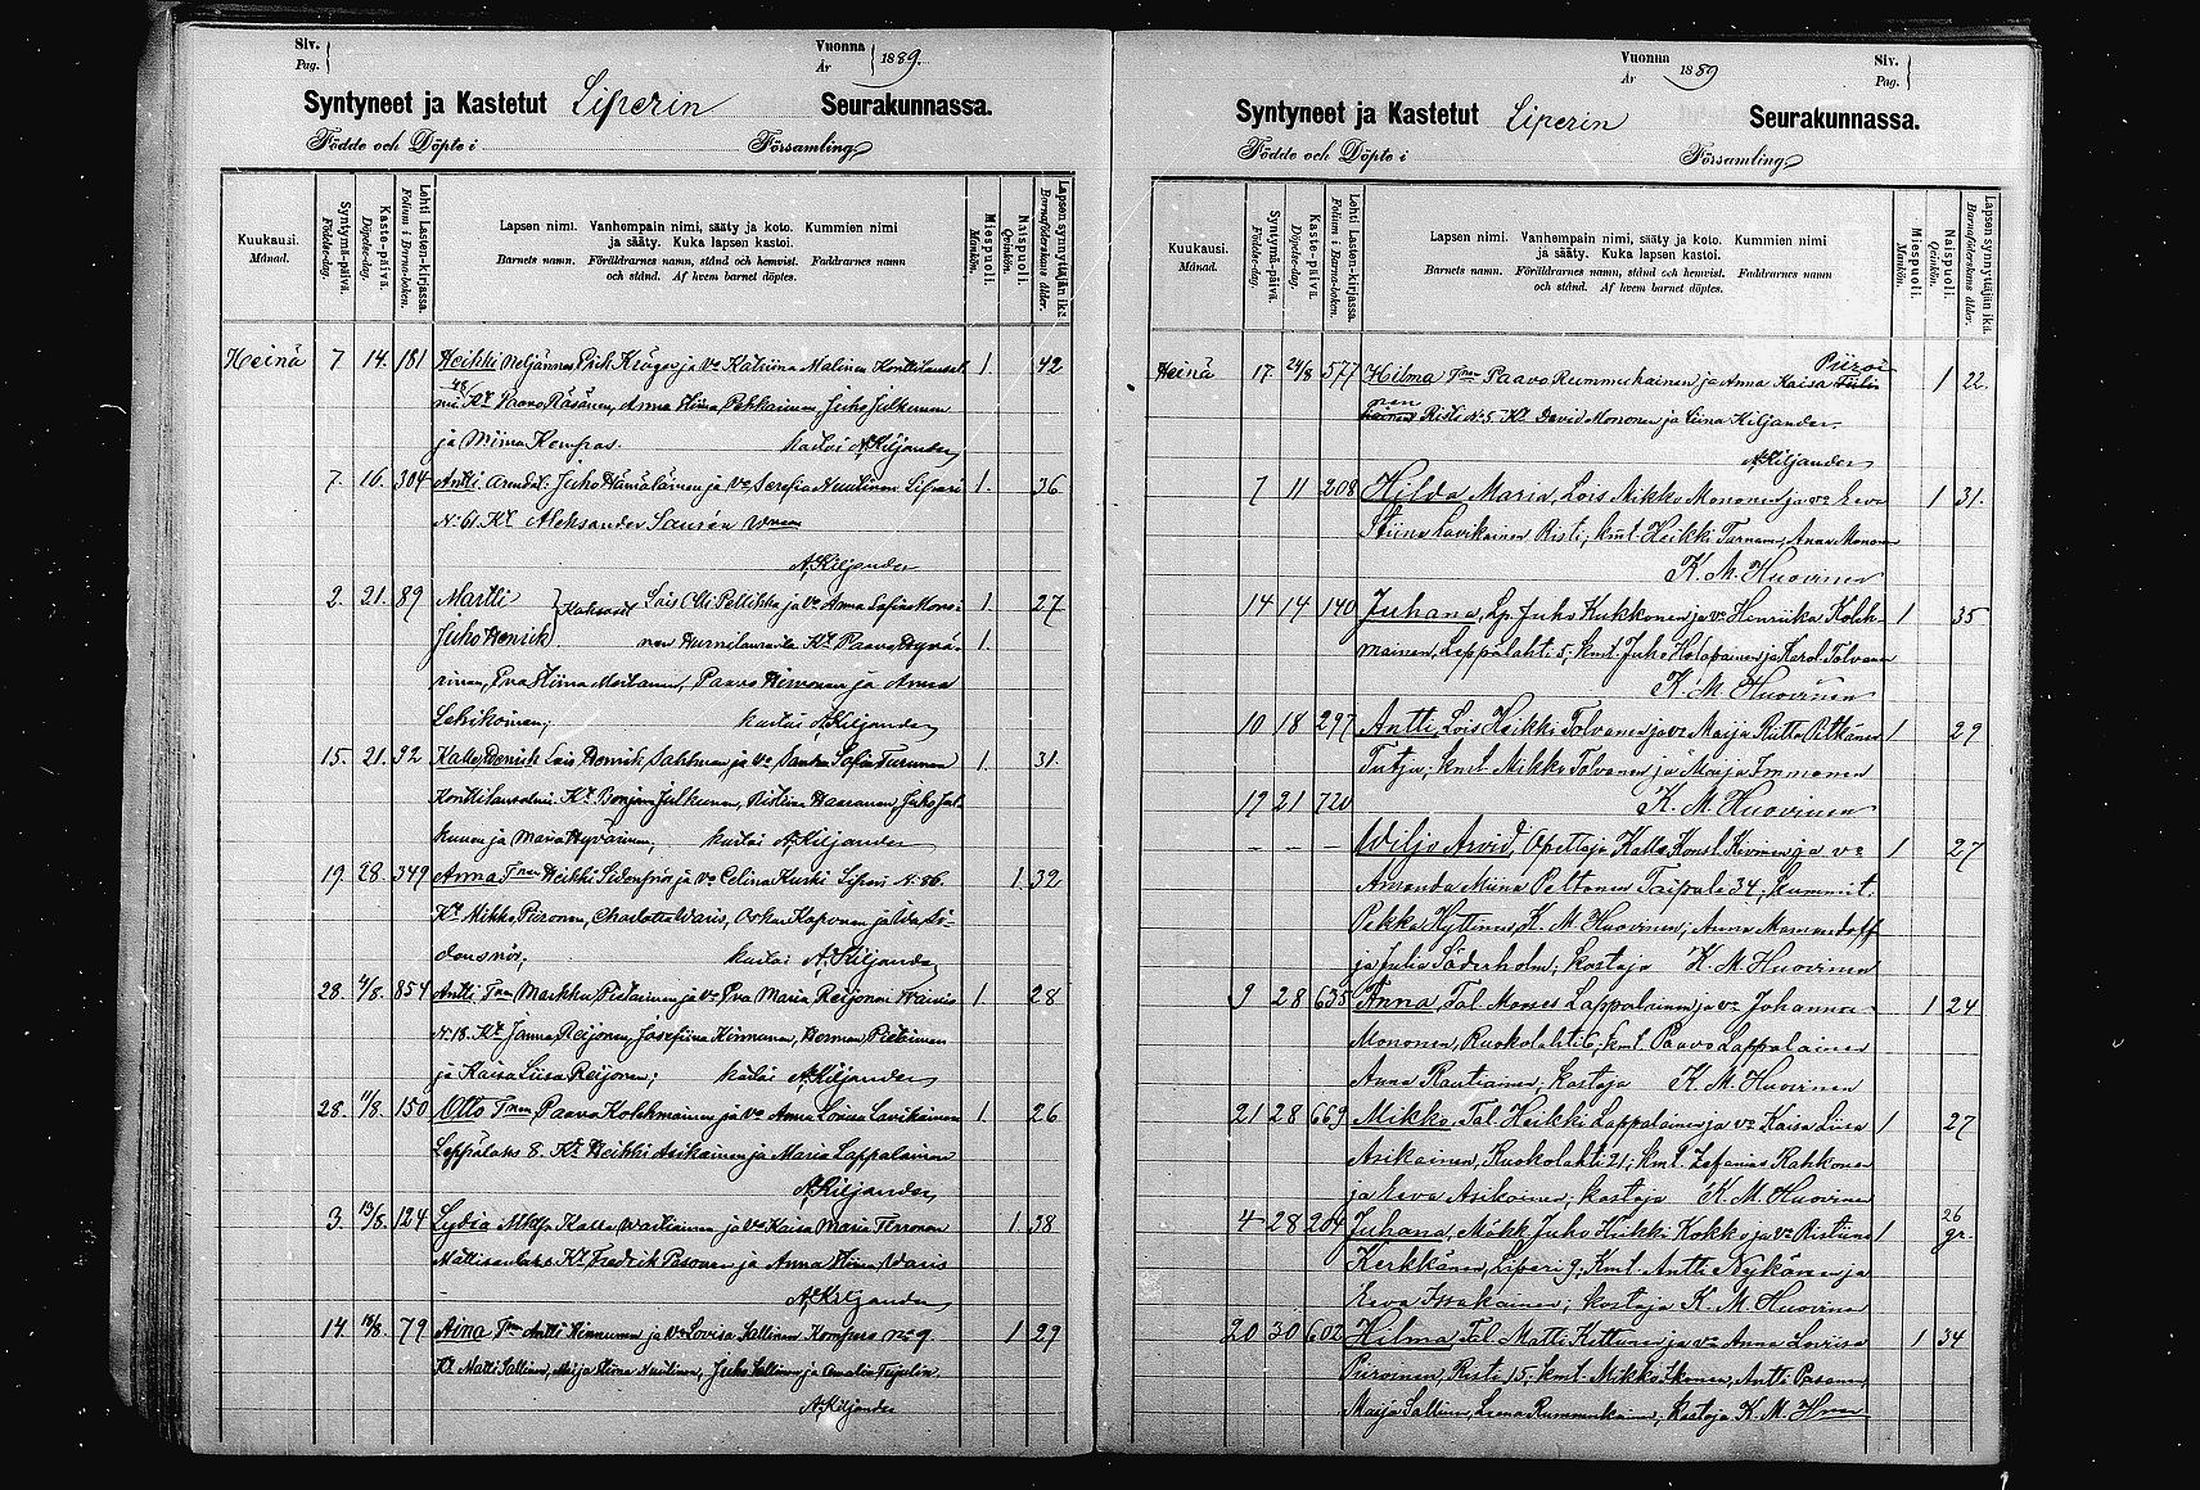 Siv.
Pag.
Vuonna
År
1889.
Syntyneet ja Kastetut Liperin Seurakunnassa.
Födde och Döpte i Församling
Kuukausi.
Månad.
Syntymä-päivä.
Födelse-dag.
Kaste-päivä.
Döpelse-dag.
Lehti Lasten-kirjassa.
Folium i Barna-boken.
Lapsen nimi. Vanhempain nimi, sääty ja koto. Kummien nimi
ja sääty. Kuka lapsen kastoi.
Barnets namn. Föräldrarnes namn, stånd och hemvist. Faddrarnes namn
och stånd. Af hvem barnet döptes.
Miespuoli.
Mankön.
Naispuoli.
Qvinkön.
Lapsen synnyttäjän ikä.
Barnaföderskans ålder.
Heinä 7 14. 181 Heikki Erik Kröger ja vo Katriina Malinen 1. 42
Kt Paavo Räsänen, Anna Stiina Pehkainen, Juho Julkunen
ja Miina Kompas. kastoi A. Kiljander
7. 16. 304 Antti Juho Hämäläinen ja vo Serafia Nuutinen Liperi 1. 36
No 61. Kt Aleksander
A. Kiljander
2. 21. 89 Martti Kaksoset Lois Olli Pellikka ja vo Anna Sofia Mono- 1. 27
Juho Henrik nen Kt Paavo Hyvä- 1.
rinen, Eva Stiina Paavo Hirvonen ja Anna
kastoi A. Kiljander
15. 21. 92 Kalle Henrik Lois Henrik Sahlman ja vo Sandra Sofia Turunen 1. 31.
Kt Benjam Julkunen, Ristiina Haaranen, Juho Jul-
kunen ja Maria Hyvärinen, kastoi A. Kiljander
19. 28. 349 Anna Heikki Sidensnör ja vo Celina Kurki Liperi No 86. 1. 32
Kt Mikko Piironen, Charlotta Waris, Oskar Kaponen ja Si-
densnör; kastoi A. Kiljander
28. 4/8. 854 Antti Markku Pietarinen ja vo Eva Maria Reijonen 1. 28
No 18. Kt Janne Reijonen, Josefiina Kinnunen, Herman Pietarinen
ja Kaisa Liisa Reijonen; kastoi A. Kiljander
28. 11/8. 150 Otto Paavo Kolehmainen ja vo Anna Loviisa Lavikainen 1. 26
Leppälaks 8. Kt Heikki Asikainen ja Maria Lappalainen
A. Kiljander
3. 13/8. 124 Lydia Kalle Wartiainen ja vo Kaisa Maria Terronen 1. 38
Mattisenlaks Kt Fredrik Pasonen ja Anna Stiina Waris
A. Kiljander
14. 18/8. 79 Aina Antti Kinnunen ja vo Lovisa Sallinen Kompero no 9. 1 29
Kt Matti Sallinen, Maija Stiina Nuutinen, Juho Sallinen ja Amalia
A. Kiljander
Vuonna
År
1889
Siv.
Pag.
Syntyneet ja Kastetut Liperin Seurakunnassa.
Födde och Döpte i Församling
Kuukausi.
Månad.
Syntymä-päivä.
Födelse-dag.
Kaste-päivä.
Döpelse-dag.
Lehti Lasten-kirjassa.
Folium i Barna-boken.
Lapsen nimi. Vanhempain nimi, sääty ja koto. Kummien nimi
ja sääty. Kuka lapsen kastoi.
Barnets namn. Föräldrarnes namn, stånd och hemvist. Faddrarnes namn
och stånd. Af hvem barnet döptes.
Miespuoli.
Mankön.
Naispuoli.
Qvinkön.
Lapsen synnyttäjän ikä.
Barnaföderskans ålder.
Piiroi
Heinä 17 24/8 577 Hilma Paavo Rummukainen ja Anna Kaisa 1 22.
nen Risti No 5 Kt David Mononen ja Eina Kiljander.
A. Kiljander
7 11 208 Hilda Maria, Lois Mikko Mononen ja vo Eeva 1 31.
Stiina Lavikainen Risti; kmt. Heikki Anna Mononen
K. M. Huovinen
14 14 140 Juhana, Lp. Juho Kukkonen ja vo Henriika Koleh- 1 35
mainen, Leppälahti 5; kmt. Juho Holopainen ja Karol. Tolvanen
K. M. Huovinen
10 18 297 Antti, Lois Heikki Tolvanen ja vo Maija Riitta Pitkänen 1 29
Tutju; kmt. Mikko Tolvanen ja Maija Immonen
19 21 720 K. M. Huovinen
– – – Wiljo Arvid, Opettaja Kalle Konst. Kivinen ja vo 1 27
Amanda Miina Peltonen Taipale 34; kummit.
Pekka Kyttinen, K. M. Huovinen; Anna
ja Julia Söderholm; kastaja K. M. Huovinen
9 28 635 Anna, Tal. Moses Lappalainen ja vo Johanna 1 24
Mononen, Ruokolahti 6; kmt. Paavo Lappalainen
Anna Rautiainen; kastaja K. M. Huovinen
21 28 669 Mikko, Tal. Heikki Lappalainen ja vo Kaisa Liisa 1 27
Asikainen, Ruokolahti 21; kmt. Zefanias Rahkonen
ja Eeva Asikainen; kastaja K. M. Huovinen
4 28 204 Juhana, Mökk. Juho Heikki Kokko ja vo Ristiina 1 26 gr.
Kerkkänen, Liperi 9; Kmt. Antti Nykänen ja
Eeva Issakainen; kastaja K. M. Huovinen
20 30 602 Hilma, Tal. Matti Kettunen ja vo Anna Loviisa 1 34
Piiroinen, Risti 15; kmt. Mikko Ikonen, Antti Pasonen,
Maija Sallinen, Leena Rummukainen; kastaja K. M. Huov.